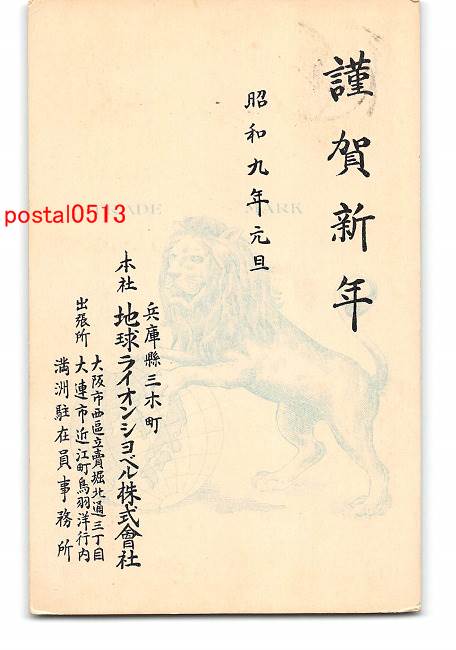 謹賀新年
昭和九年元旦
兵庫縣三木町
本社 地球ライオンシヨベル株式會社
大阪市西區立賣堀北通三丁目
出張所 大連市近江町鳥羽洋行内
満洲駐在員事務所
TRADE MARK
postal0513